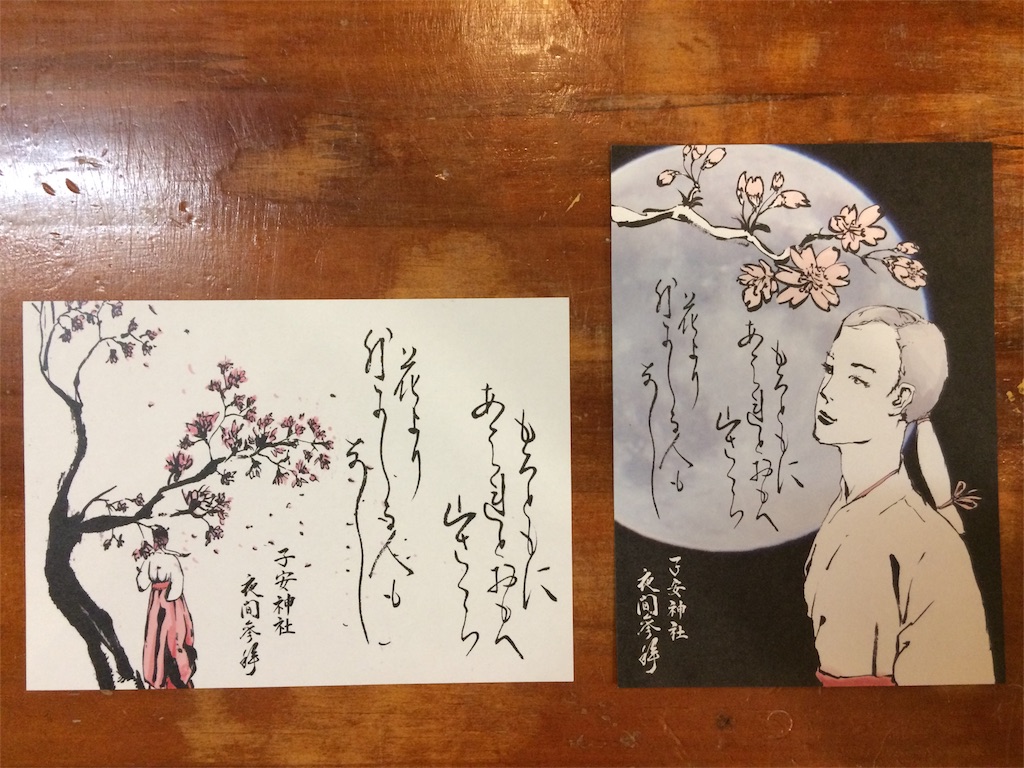 もろともに
あはれとおもへ
山さくら
花より
外にしる人も
なし
子安神社
夜間参拝
もろともに
あはれとおもへ
山さくら
花より
外にしる人も
なし
子安神社
夜間参拝